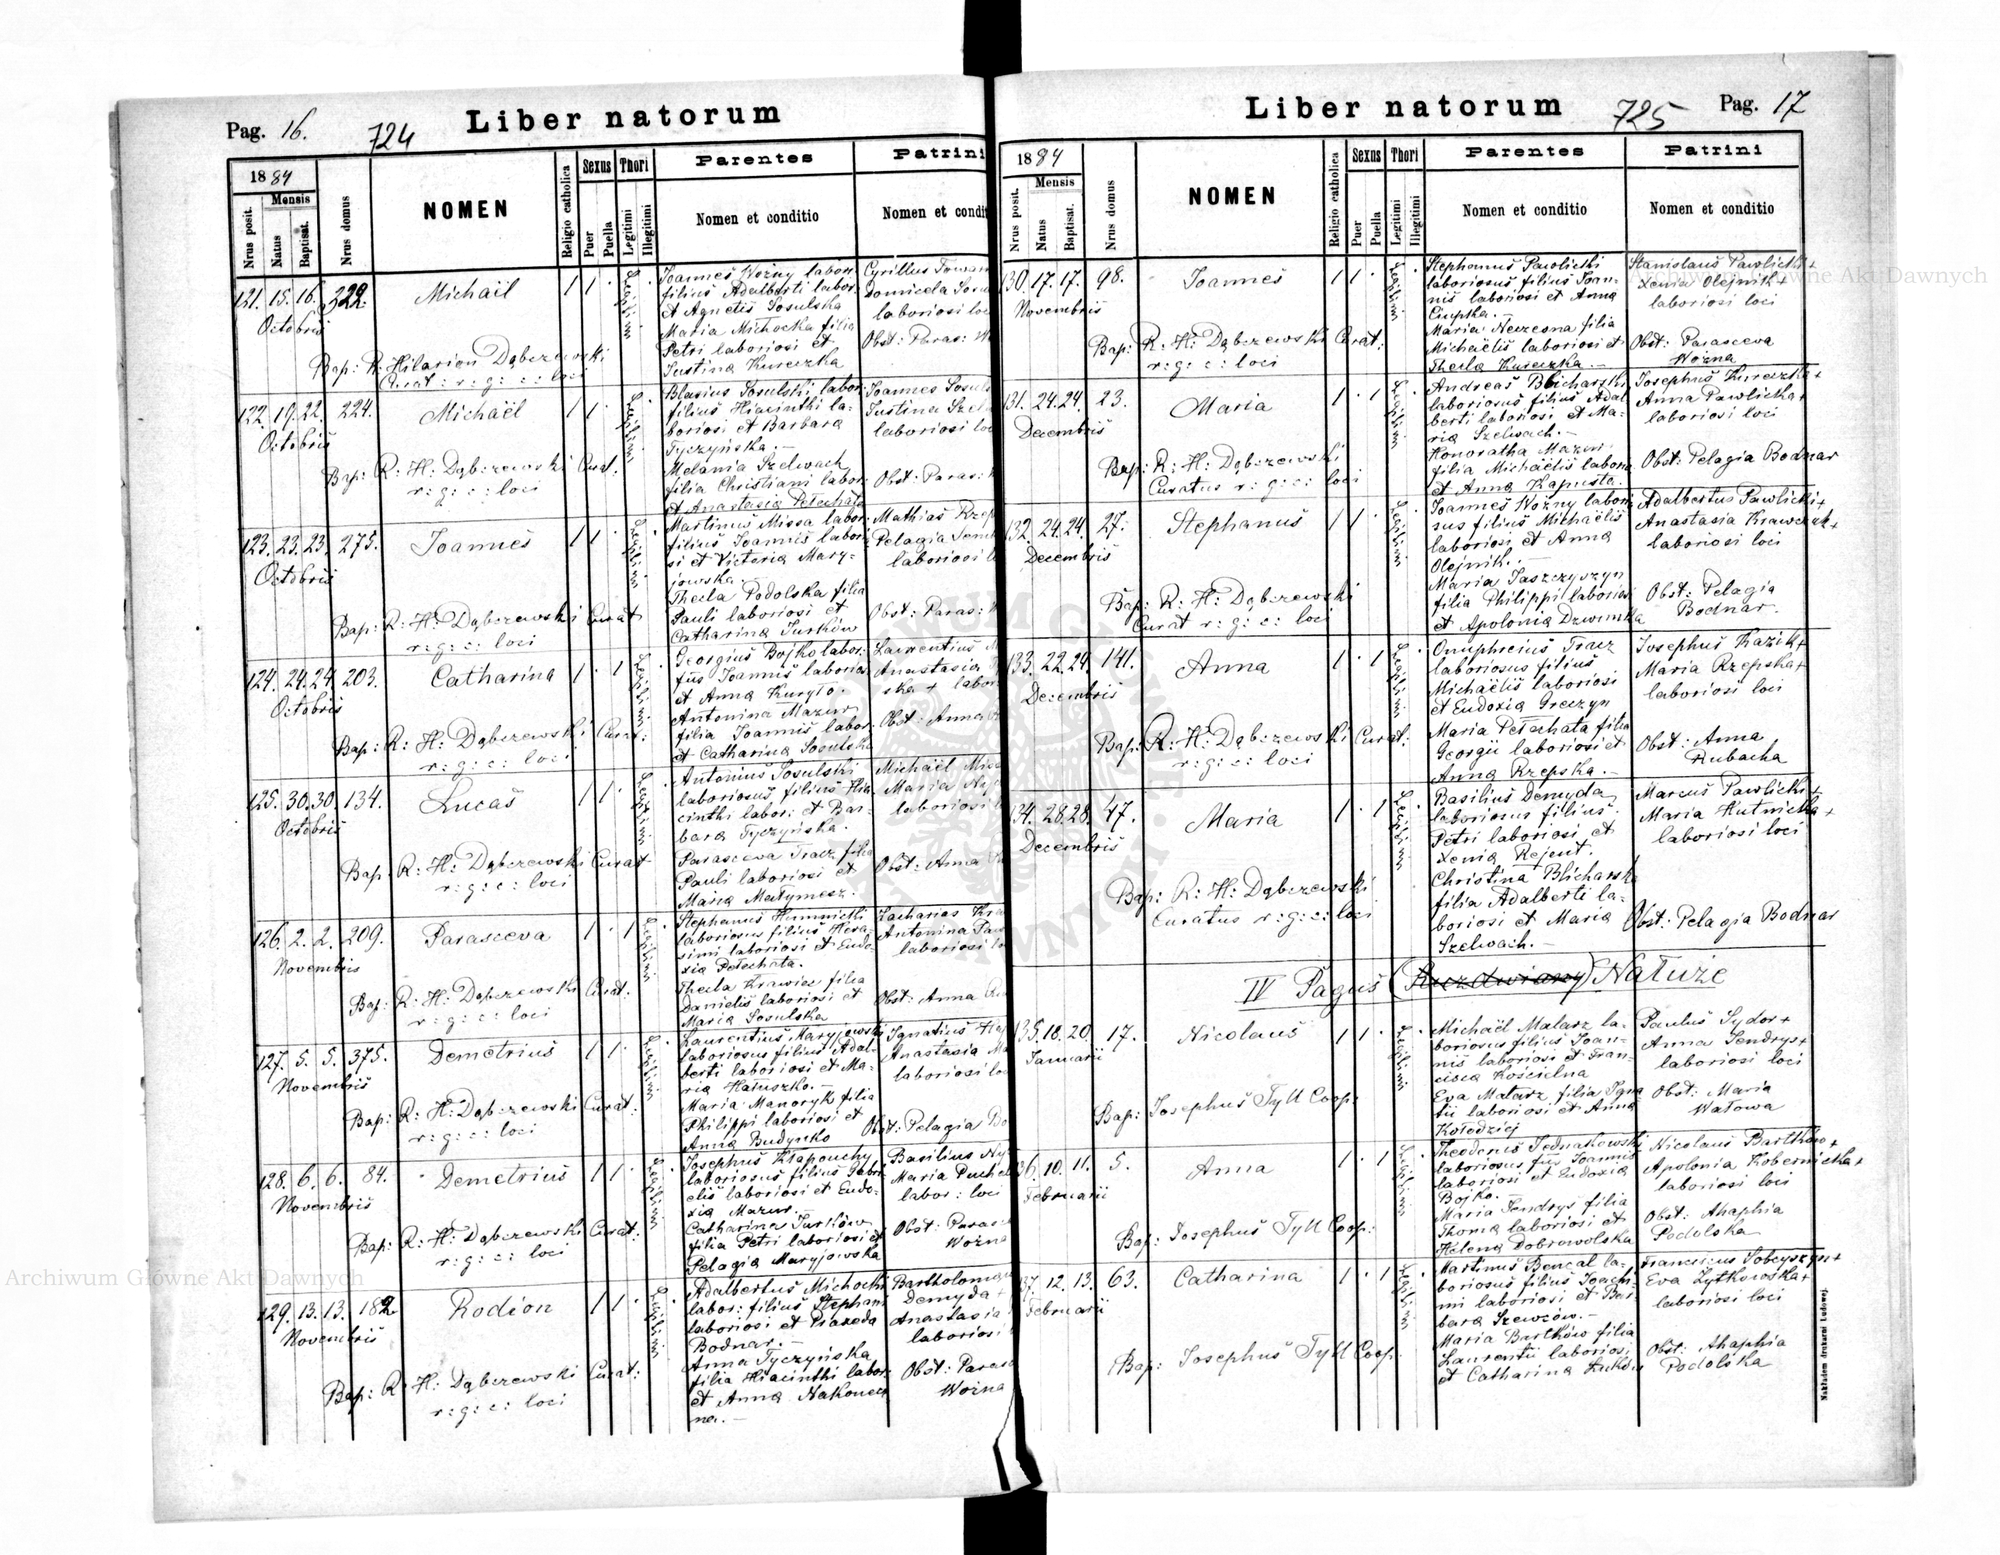 Pag. 16.
724
Liber natorum
1884
Mensis
Nrus posit.
Natus
Baptisat.
Nrus domus
NOMEN
Religio catholica
Sexus
Puer
Puella
Thori
Legitimi
Illegitimi
Parentes
Nomen et conditio
Patrini
Nomen et condi
121. 15. 16. 322. Michaïl 1 1 Legitimi
Octobris
Joannes Woźny labori
filius Adalberti labor:
et Agnetis Sosulska
Maria Michocka filia
Petri laboriosi et
Justina Kureczka
Cyrillus
Domicela
laboriosi loci
Obst: Paras:
Bap: R: Hilarion Dąbczewski
Curat: r: g: c: loci
122. 19. 22. 224. Michaël 1 1 Legitimi
Octobris
Blasius Sosulski labor:
filius Hiacinthi la-
boriosi et Barbara
Tyczyńska.-
Melania Szelwach
filia Christiani labor:
et Anastasia Petechata
Joannes Sosul
Justina Szel
laboriosi loc
Obst: Paras:
Bap: R: H: Dąbczewski Curat:
r: g: c: loci
123. 23. 23. 275. Joannes 1 1 Legitimi
Octobris
Martinus Missa labor:
filius Joannis labori
si et Victoria Mary-
jowska.
Thecla Podolska filia
Pauli laboriosi et
Catharina Jurków
Mathias Rzep
Pelagia
laboriosi
Obst: Paras:
Bap: R: H: Dąbczewski Curat
r: g: c: loci
124. 24. 24. 203. Catharina 1 1 Legitimi
Octobris
Georgius Bojko labor:
fus Joannis laborio
et Anna Kuryło.
Antonina Mazur
filia Joannis labor:
et Catharina Sosulska
Laurentius
Anastasia
ska + labor
Obst: Anna
Bap: R: H: Dąbczewski Curat:
r: g: c: loci
125. 30. 30. 134. Lucas 1 1 Legitimi
Octobris
Antonius Sosulski
laboriosus, filius Hia-
cinthi labor: et Bar-
bara Tyczyńska.
Parasceva Tracz filia
Pauli laboriosi et
Maria Matymesz.
Michaël
Maria
laboriosi
Obst: Anna
Bap: R: H: Dąbczewski Curat
r: g: c: loci
126. 2. 2. 209. Parasceva 1 1 Legitimi
Novembris
Stephanus Humnicki
laboriosus filius Hera-
simi laboriosi et Eudo-
xia Petechata.
Thecla Krawiec filia
Danielis laboriosi et
Maria Sosulska
Zacharias
Antonina
laboriosi
Obst: Anna
Bap: R: H: Dąbczewski Curat:
r: g: c: loci
127. 5. 5. 375. Demetrius 1 1 Legitimi
Novembris
Laurentius Maryjowski
laboriosus filius Adal-
berti laboriosi et Ma-
ria Hałuszko.-
Maria Manoryk filia
Philippi laboriosi et
Anna Budynko
Ignatius
Anastasia
laboriosi loc
Obst: Pelagia Bo
Bap: R: H: Dąbczewski Curat:
r: g: c: loci
128. 6. 6. 84. Demetrius 1 1 Legitimi
Novembris
Josephus Kłapouchy
laboriosus filius Gabri-
elis laboriosi et Eudo-
xia Mazur.-
Catharina Jurków
filia Petri laboriosi et
Pelagia Maryjowska
Basilius
Maria
labor: loci
Obst: Paras
Woźna
Bap: R: H: Dąbczewski Curat:
r: g: c: loci
129. 13. 13. 182. Rodion 1 1 Legitimi
Novembris
Adalbertus Michocki
labor: filius Stephani
laboriosi et Praxeda
Bodnar.-
Anna Tyczyńska
filia Hiacinthi labor:
et Anna Nakonecz
na.-
Bartholom
Demyda
Anastasia
laboriosi
Obst: Paras
Woźna
Bap: R: H: Dąbczewski Curat:
r: g: c: loci
Liber natorum
725
Pag. 17
1884
Mensis
Nrus posit.
Natus
Baptisat.
Nrus domus
NOMEN
Religio catholica
Sexus
Puer
Puella
Thori
Legitimi
Illegitimi
Parentes
Nomen et conditio
Patrini
Nomen et conditio
130. 17. 17. 98. Joannes 1 1 Legitimi
Novembris
Stephanus Pawlicki
laboriosus, filius Joan-
nis laboriosi et Anna
Ciupka.
Maria Neczesna filia
Michaëlis laboriosi et
Thecla Kureczka.-
Stanislaus Pawlicki+
Xenia Olejnik+
laboriosi loci
Obst: Parasceva
Woźna
Bap: R: H: Dąbczewski Curat:
r: g: c: loci
131. 24. 24. 23. Maria 1 1 Legitimi
Decembris
Andreas Blicharski
laboriosus filius Adal
berti laboriosi et Ma-
ria Szelwach.-
Honoratha Mazur
filia Michaëlis labori
et Anna Kapusta.
Josephus Kureczka+
Anna Pawlicka+
laboriosi loci
Obst: Pelagia Bodnar
Bap: R: H: Dąbczewski
Curatus r: g: c: loci
132. 24. 24. 27. Stephanus 1 1 Legitimi
Decembris
Joannes Woźny labori
sus filius Michaëlis
laboriosi et Anna
Olejnik.
Maria Jaszczyszyn
filia Philippi laboriosi
et Apolonia
Adalbertus Pawlicki+
Anastasia Krawczuk+
laboriosi loci
Obst: Pelagia
Bodnar.
Bap: R: H: Dąbczewski
Curat r: g: c: loci
133. 22. 24. 141. Anna 1 1 Legitimi
Decembris
Onuphreius Tracz
laboriosus filius
Michaëlis laboriosi
et Eudoxia Greczyn
Maria Petechata filia
Georgii laboriosi et
Anna Rzepska.-
Josephus Kazik+
Maria Rzepska+
laboriosi loci
Obst: Anna
Rubacha
Bap: R: H: Dąbczewski Curat:
r: g: c: loci
134. 28. 28. 47. Maria 1 1 Legitimi
Decembris
Basilius Demyda
laboriosus filius
Petri laboriosi et
Xenia Rejent.
Christina Blicharska
filia Adalberti la-
boriosi et Maria
Szelwach.-
Marcus Pawlicki+
Maria Hutnicka+
laboriosi loci
Obst: Pelagia Bodnar
Bap: R: H: Dąbczewski
Curatus r: g: c: loci
IV Pagus Natuże
135. 18. 20. 17. Nicolaus 1 1 Legitimi
Januarii
Michaël Malarz la-
boriosus filius Joan-
nis laboriosi et Fran-
cisca Kościelna
Eva Malarz, filia Igna
tii laboriosi et Anna
Kołodziej
Paulus Sydor+
Anna Sendrys+
laboriosi loci
Obst: Maria
Watowa
Bap: Josephus Tyll Coop:
136. 10. 11. 5. Anna 1 1 Legitimi
Februarii
Theodorus Jednakowski
laboriosus fus Joannis
laboriosi et Eudoxia
Bojko.
Maria Sendrys filia
Thoma laboriosi et
Helena Dobrowolska
Nicolaus Bartków+
Apolonia Kobernicka+
laboriosi loci
Obst: Ahaphia
Podolska
Bap: Josephus Tyll Coop:
137. 12. 13. 63. Catharina 1 1 Legitimi
Februarii
Martinus Bencal la-
boriosus filius Joach-
mi laboriosi et Bar-
bara Szewców.-
Maria Bartków filia
Laurentii laboriosi
et Catharina
Franciscus Sobczyszyn+
Eva Zytkowska+
laboriosi loci
Obst: Ahaphia
Podolska
Bap: Josephus Tyll Coop.
Nakładem drukarni Ludowej.
Archiwum Główne Akt Dawnych
Archiwum Główne Akt Dawnych